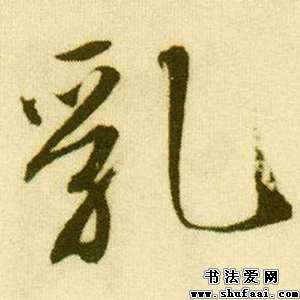 乳
书法爱网
www.shufaai.com